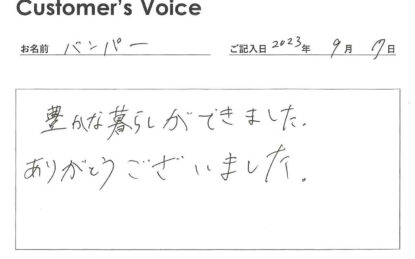 Customer's Voice
お名前 バンパー ご記入日 2023年 9月 7日
豊かな暮らしができました.
ありがとうございました.